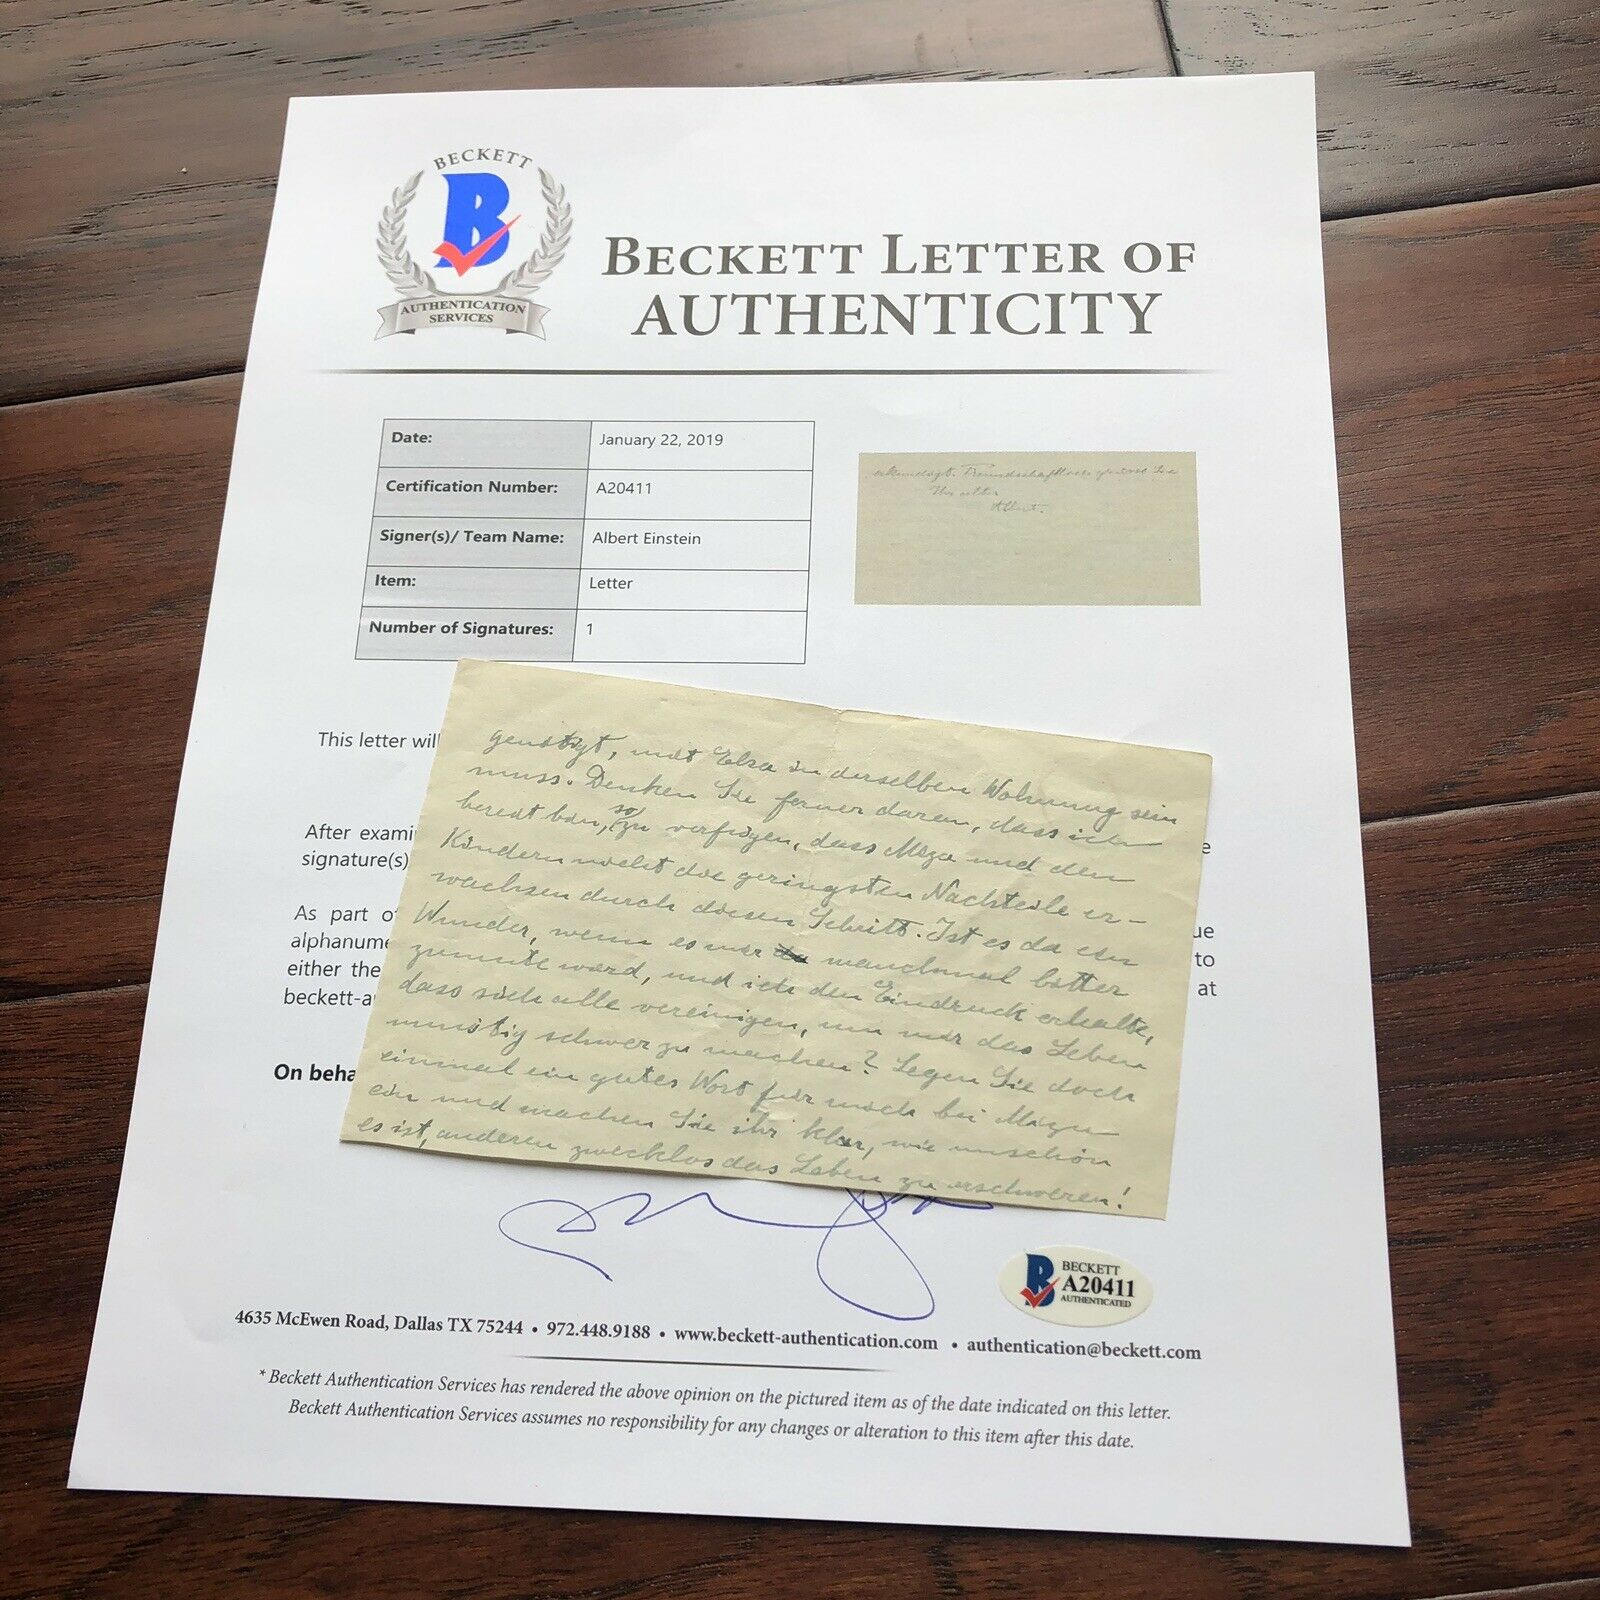 BECKETT
B
AUTHENTICATION
SERVICES
BECKETT LETTER OF
AUTHENTICITY
Date: January 22, 2019
Certification Number: A20411
Signer(s)/ Team Name: Albert Einstein
Item: Letter
Number of Signatures: 1
Freundschaftlich grüsst Sie
Ihr alter
Albert.
This letter will
After exami
signature(s)
As part of
alphanume
either the
beckett-a
e
ue
to
at
On beha
genötigt, mit Elsa in derselben Wohnung sein
muss. Denken Sie ferner daran, dass ich
bereit bin, so zu verfügen, dass Miza und den
Kindern nicht die geringsten Nachteile er-
wachsen durch diesen Schritt. Ist es da ein
Wunder, wenn es mir manchmal bitter
zumute wird, und ich den Eindruck erhalte,
dass sich alle vereinigen, um mir das Leben
unnötig schwer zu machen? Legen Sie doch
einmal ein gutes Wort für mich bei Miza
ein und machen Sie ihr klar, wie unschön
es ist, anderen zwecklos das Leben zu erschweren!
B BECKETT
A20411
AUTHENTICATED
4635 McEwen Road, Dallas TX 75244 • 972.448.9188 • www.beckett-authentication.com • authentication@beckett.com
* Beckett Authentication Services has rendered the above opinion on the pictured item as of the date indicated on this letter.
Beckett Authentication Services assumes no responsibility for any changes or alteration to this item after this date.